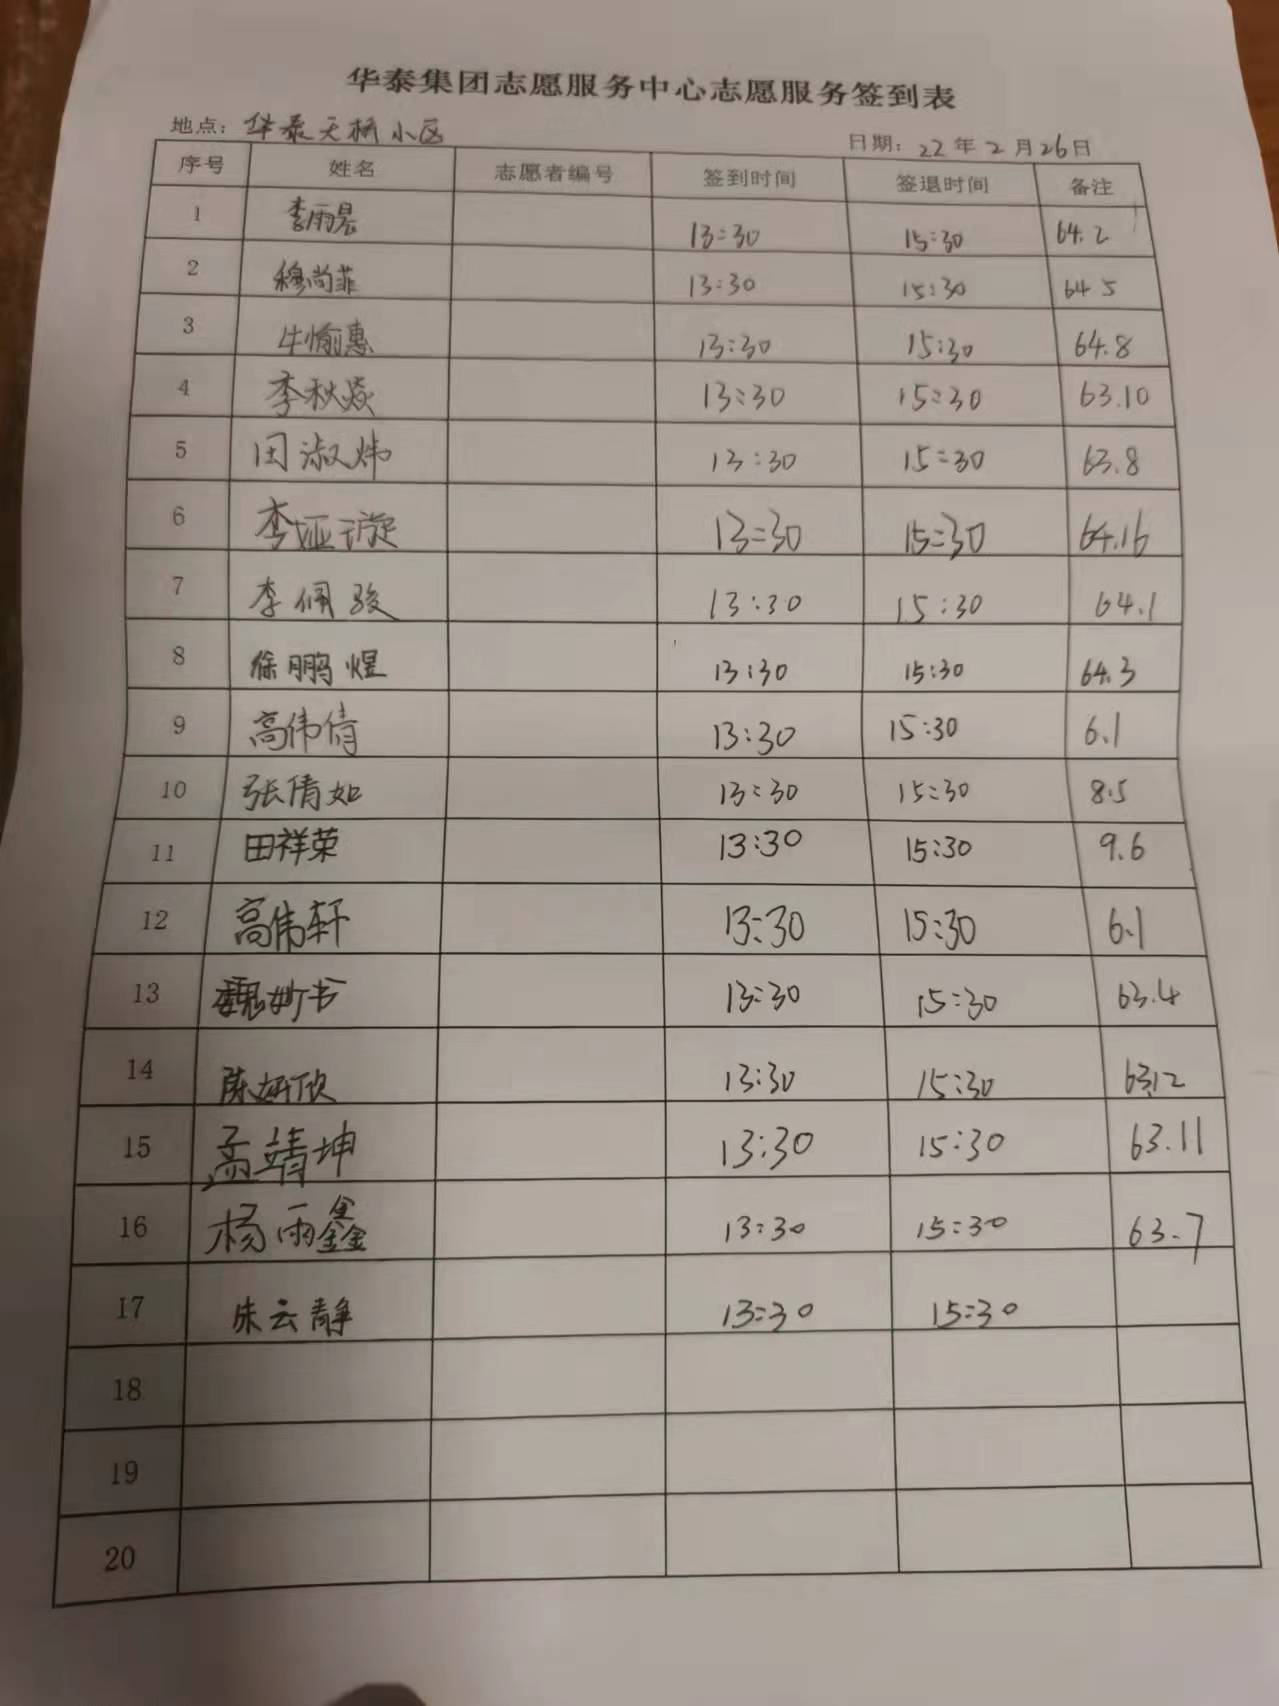 华泰集团志愿服务中心志愿服务签到表
地点：华泰天桥小区 日期：22年2月26日
序号 姓名 志愿者编号 签到时间 签退时间 备注
1 李雨晨 13:30 15:30 64.2
2 穆尚菲 13:30 15:30 64.5
3 牛愉惠 13:30 15:30 64.8
4 李秋焱 13:30 15:30 63.10
5 田淑炜 13:30 15:30 63.8
6 李垭璇 13:30 15:30 64.16
7 李佩骏 13:30 15:30 64.1
8 徐鹏煜 13:30 15:30 64.3
9 高伟倩 13:30 15:30 6.1
10 张倩如 13:30 15:30 8.5
11 田祥荣 13:30 15:30 9.6
12 高伟轩 13:30 15:30 6.1
13 魏妙书 13:30 15:30 63.4
14 陈妍欣 13:30 15:30 63.12
15 孟靖坤 13:30 15:30 63.11
16 杨雨鑫 13:30 15:30 63.7
17 朱云静 13:30 15:30
18
19
20